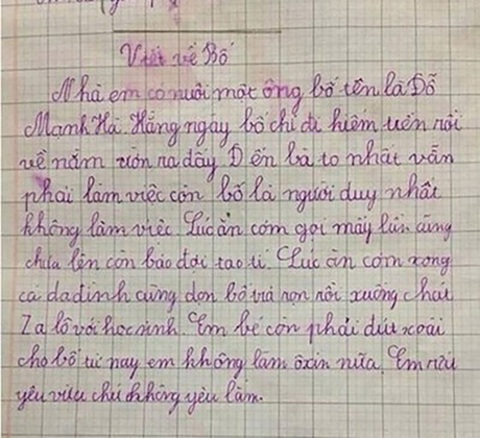 Viết về Bố
Nhà em có nuôi một ông bố tên là Đỗ
Mạnh Hà. Hằng ngày bố chỉ đi kiếm tiền rồi
về nằm ườn ra đấy Đến bà to nhất vẫn
phải làm việc còn bố là người duy nhất
không làm việc Lúc ăn cơm gọi mấy lần cũng
chưa lên còn bảo đợi tao tí. Lúc ăn cơm xong
cả da đình cùng dọn bố vừa nọn rồi xuống chát
Za lô với học sinh. Em bé còn phải đút xoài
cho bố từ nay em không làm ôxin nữa. Em
yêu vừa chứ không yêu lắm.